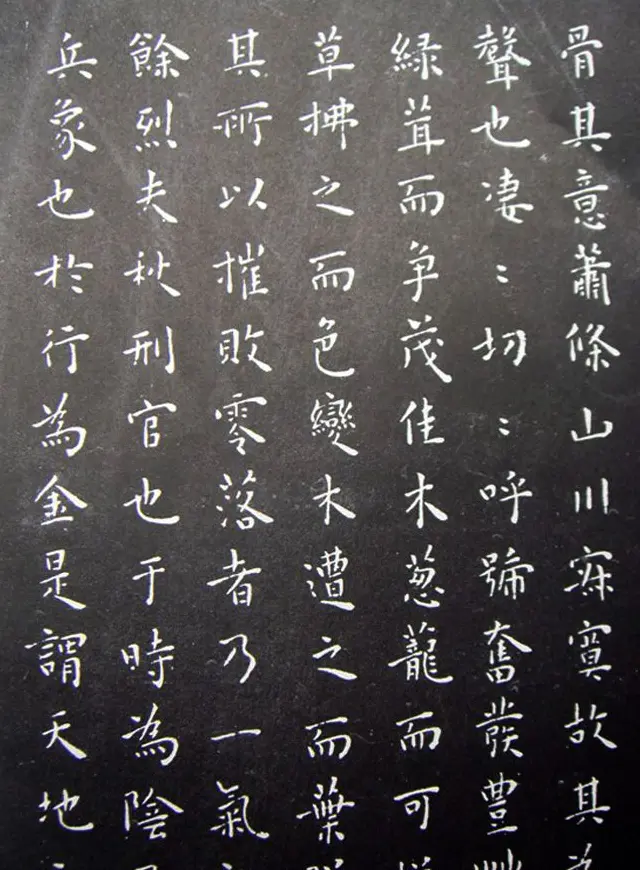 骨其意蕭條山川寂寞故其為
聲也淒〻切〻呼號奮發豐艸
緑茸而争茂佳木葱蘢而可
草拂之而色變木遭之而葉
其所以摧敗零落者乃一氣
餘烈夫秋刑官也于時為陰
兵象也於行為金是謂天地